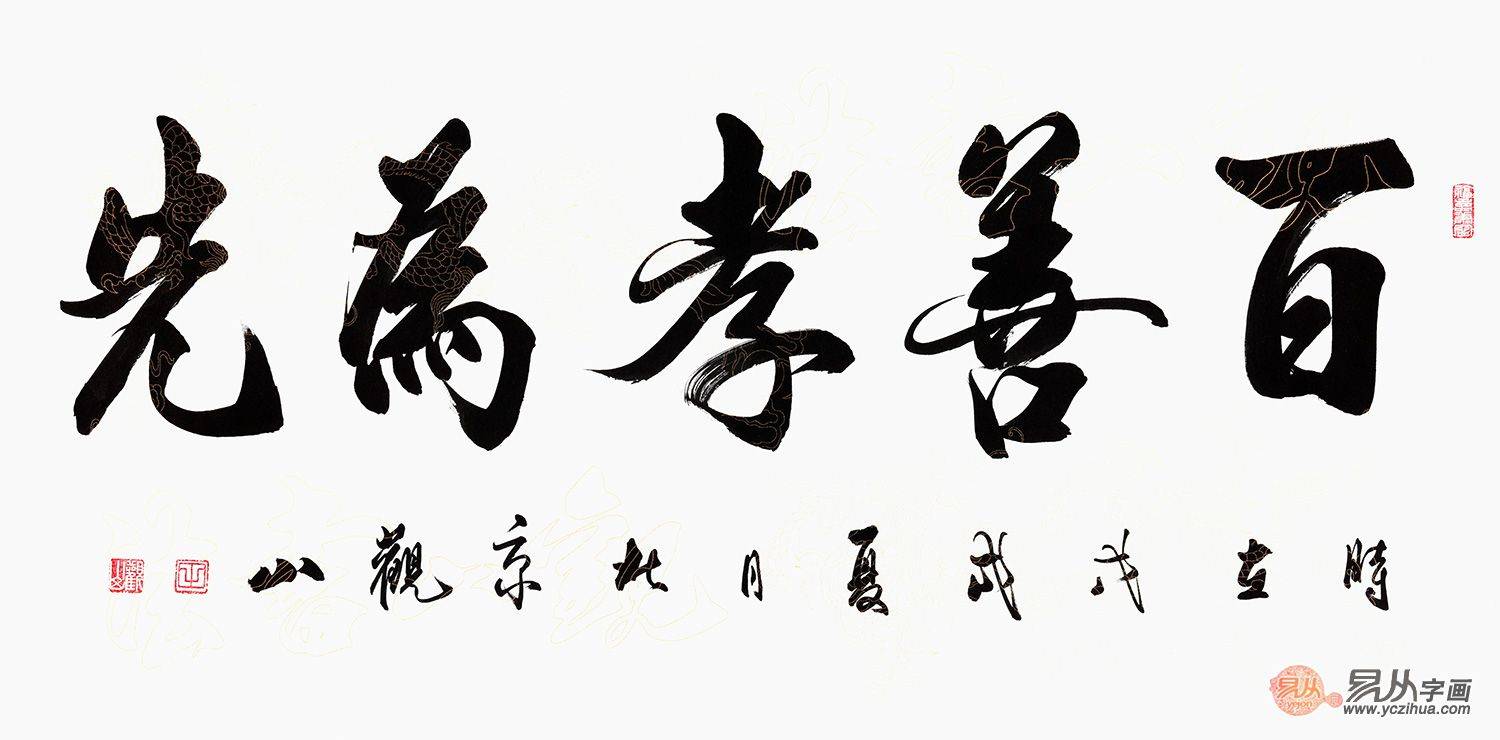 百善孝為先
時在戊戌夏月北京觀山
易从
yejon
易从字画
www.yczihua.com